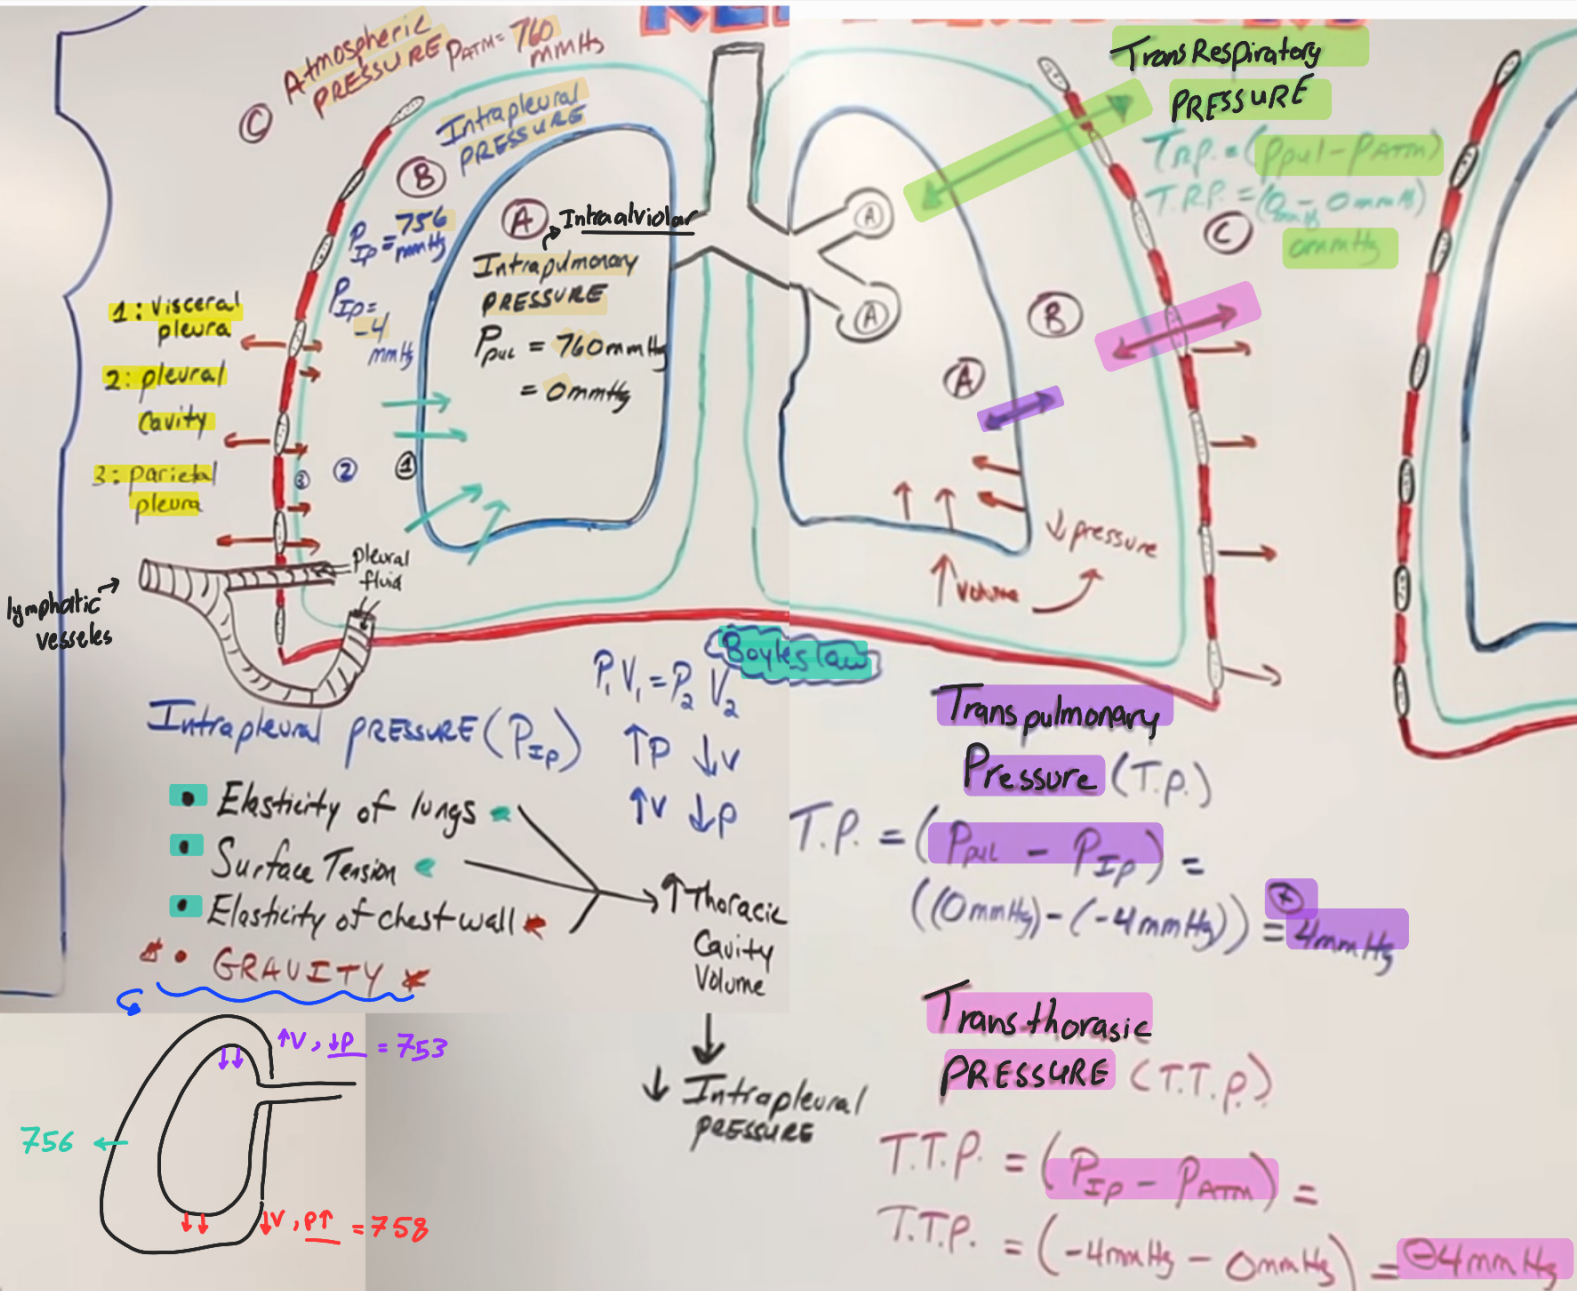 Ⓒ Atmospheric
PRESSURE PATM= 760
mmHg
Ⓑ Intrapleural
PRESSURE
PIP = 756
mmHg
PIP=
-4
mmHg
Ⓐ → Intraalviolar
Intrapulmonary
PRESSURE
Ppul = 760mmHg
= 0mmHg
1: Visceral
pleura
2: pleural
Cavity
3: parietal
pleura
③ ② ①
pleural
fluid
lymphatic
vesseles
TransRespiratory
PRESSURE
T.R.P. = (Ppul - PATM)
T.R.P. = (0mmHg - 0mmHg)
0mmHg
Ⓒ
Ⓐ
Ⓐ
Ⓑ
Ⓐ
↓ pressure
↑ Volume
Boyles law
P1V1 = P2V2
↑P ↓V
↑V ↓P
Intrapleural PRESSURE (PIP)
• Elasticity of lungs
• Surface Tension
• Elasticity of chest wall
• GRAVITY
↑ Thoracic
Cavity
Volume
↓ Intrapleural
PRESSURE
↑V, ↓P = 753
756
↓V, P↑ = 758
Transpulmonary
Pressure (T.P.)
T.P. = (Ppul - PIP) =
((0mmHg) - (-4mmHg)) = ⊕ 4mmHg
Transthorasic
PRESSURE (T.T.P.)
T.T.P. = (PIP - PATM) =
T.T.P. = (-4mmHg - 0mmHg) = ⊖4mmHg